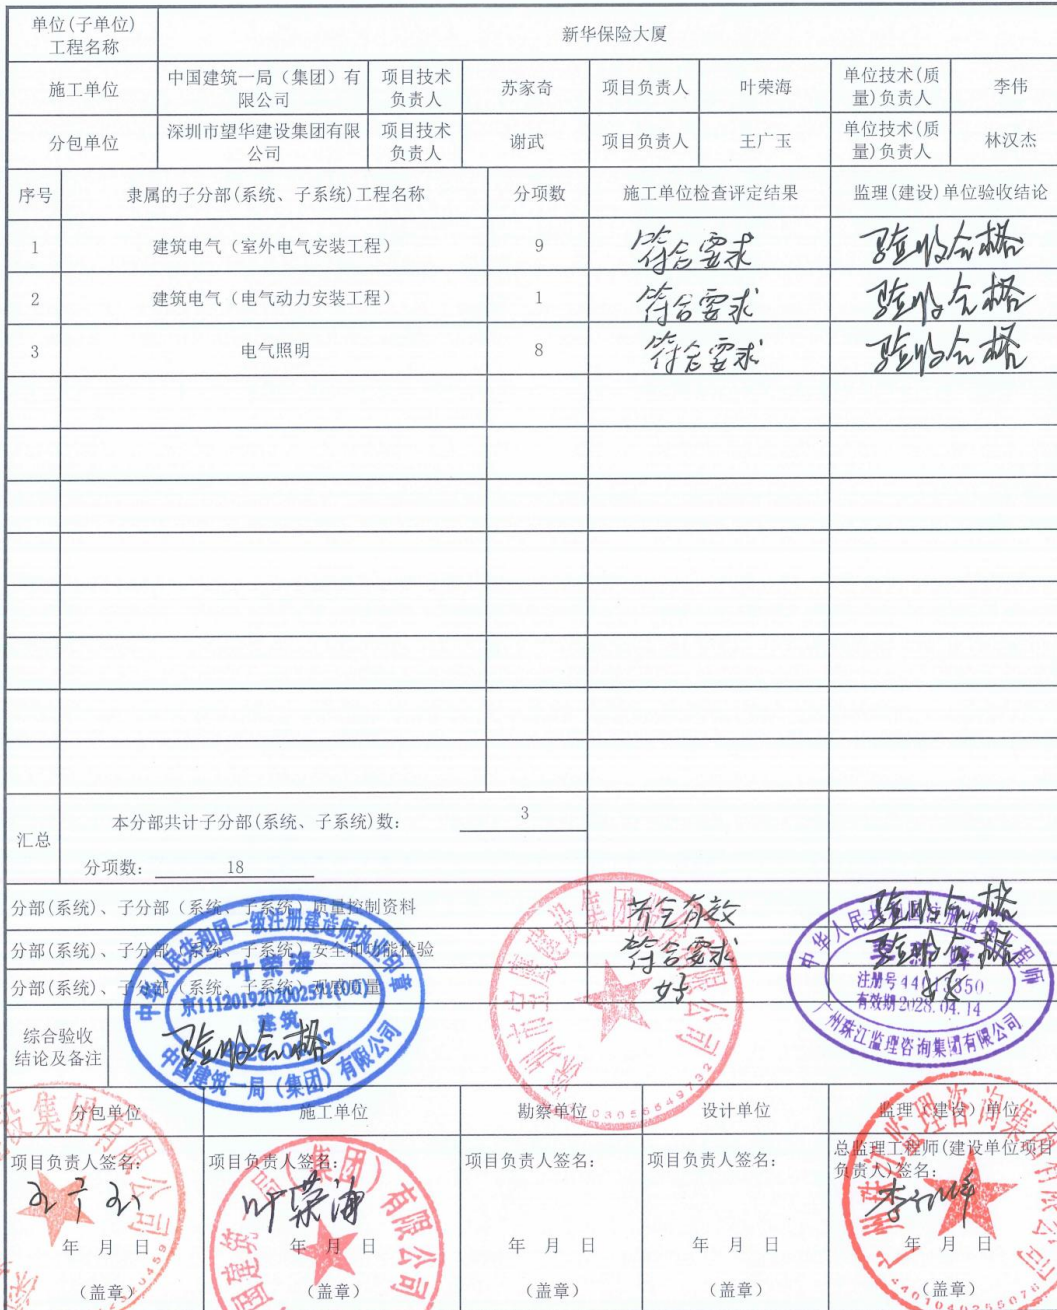 单位(子单位)
工程名称
新华保险大厦
施工单位
中国建筑一局（集团）有
限公司
项目技术
负责人
苏家奇
项目负责人
叶荣海
单位技术(质
量)负责人
李伟
分包单位
深圳市望华建设集团有限
公司
项目技术
负责人
谢武
项目负责人
王广玉
单位技术(质
量)负责人
林汉杰
序号 隶属的子分部(系统、子系统)工程名称 分项数 施工单位检查评定结果 监理(建设)单位验收结论
1 建筑电气（室外电气安装工程） 9 符合要求 验收合格
2 建筑电气（电气动力安装工程） 1 符合要求 验收合格
3 电气照明 8 符合要求 验收合格
汇总
本分部共计子分部(系统、子系统)数： 3
分项数： 18
分部(系统)、子分部（系统、子系统）质量控制资料 齐全有效 验收合格
分部(系统)、子分部（系统、子系统）安全和功能检验 符合要求 验收合格
分部(系统)、子分部（系统、子系统）观感质量 好 好
综合验收
结论及备注
验收合格
中华人民共和国一级注册建造师执业印章
叶荣海
京1112019202002571(00)
建筑
中国建筑一局（集团）有限公司
中华人民共和国注册监理工程师
有效期2028.04.14
广州珠江监理咨询集团有限公司
分包单位 施工单位 勘察单位 设计单位 监理（建设）单位
项目负责人签名： 项目负责人签名： 项目负责人签名： 项目负责人签名： 总监理工程师(建设单位项目
负责人)签名：
王广玉 叶荣海
年 月 日 年 月 日 年 月 日 年 月 日 年 月 日
（盖章） （盖章） （盖章） （盖章） （盖章）